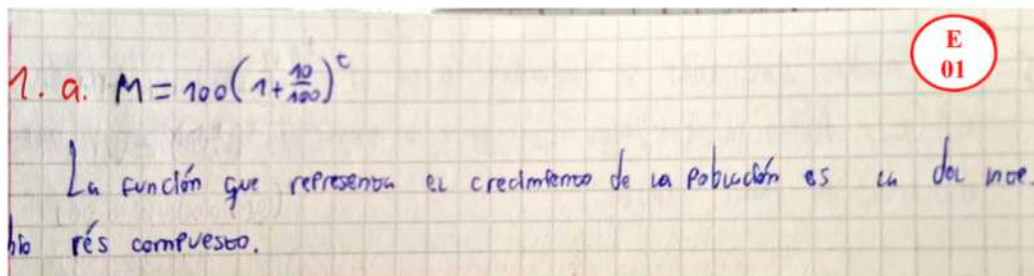 E
01
1. a. M = 100(1+10/100)^t
La función que representa el crecimiento de la población es la del inte.
rés compuesto.